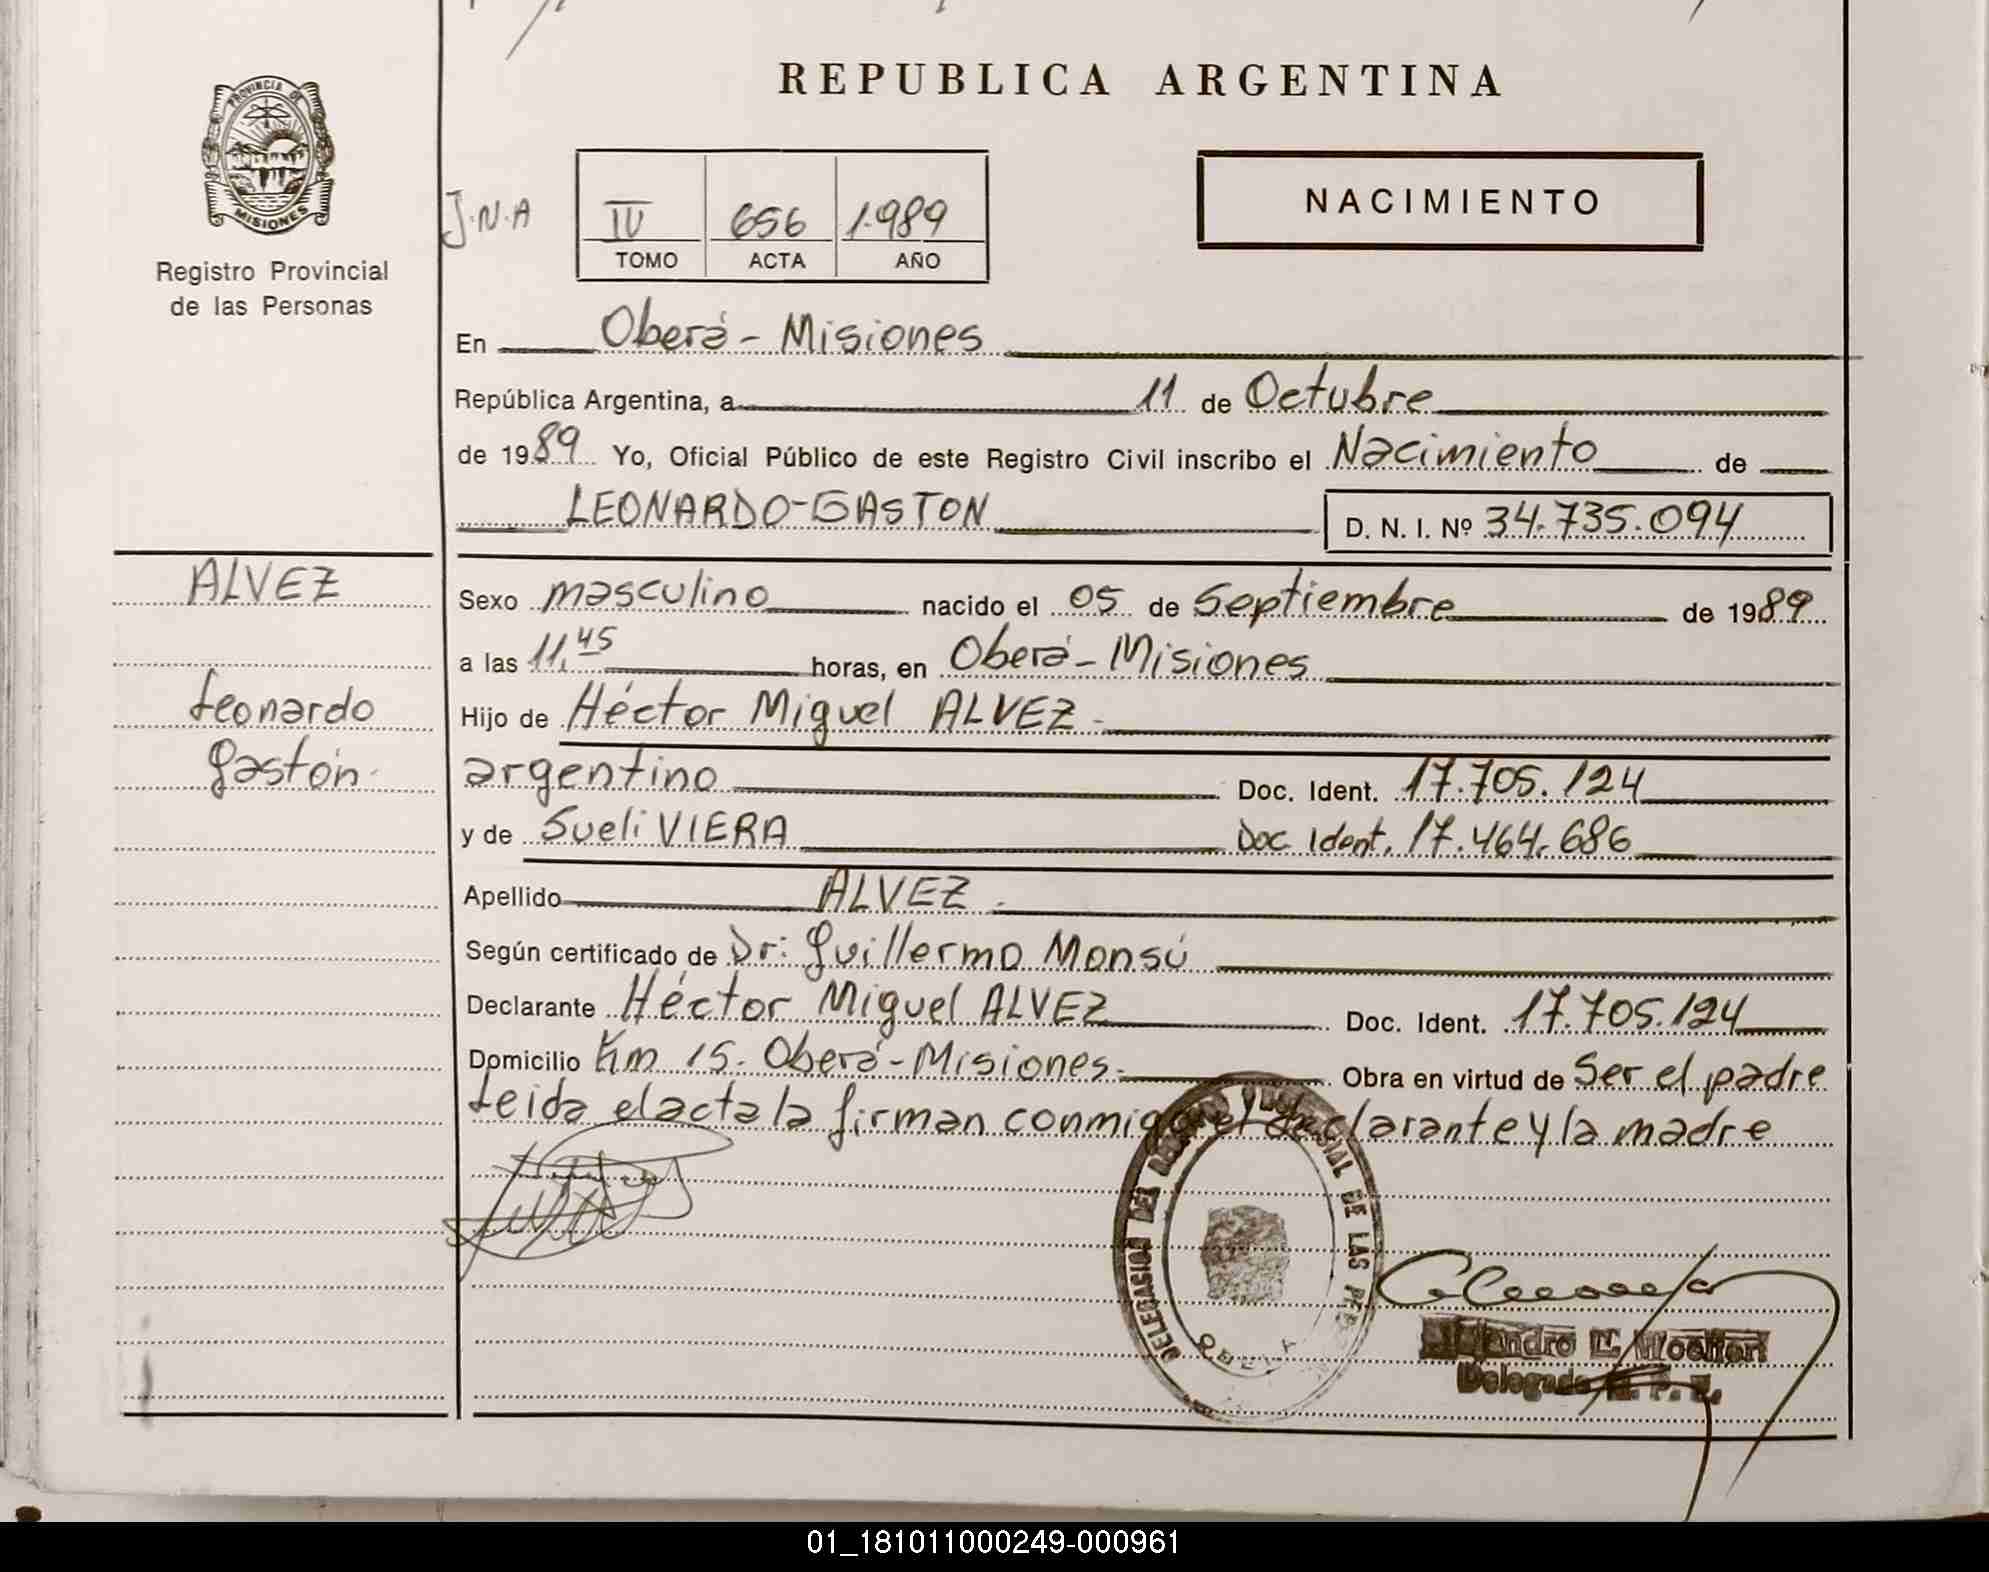 REPUBLICA ARGENTINA
PROVINCIA DE
MISIONES
Registro Provincial
de las Personas
J.N.A
IV 656 1.989
TOMO ACTA AÑO
NACIMIENTO
En Oberá - Misiones
República Argentina, a 11 de Octubre
de 1989 Yo, Oficial Público de este Registro Civil inscribo el Nacimiento de
LEONARDO-GASTON D. N. I. Nº 34.735.094
ALVEZ
Leonardo
Gastón
Sexo masculino nacido el 05 de Septiembre de 1989
a las 11,45 horas, en Oberá - Misiones
Hijo de Héctor Miguel ALVEZ -
argentino Doc. Ident. 17.705.124
y de Sueli VIERA Doc Ident. 17.464.686
Apellido ALVEZ.
Según certificado de Dr: Guillermo Monsú
Declarante Héctor Miguel ALVEZ Doc. Ident. 17.705.124
Domicilio Km 15. Oberá - Misiones. Obra en virtud de Ser el padre
Leida el acta la firman conmigo el declarante y la madre
DELEGACION DEL REGISTRO PROVINCIAL DE LAS
OBERA
Delegado R. P. P.
01_181011000249-000961